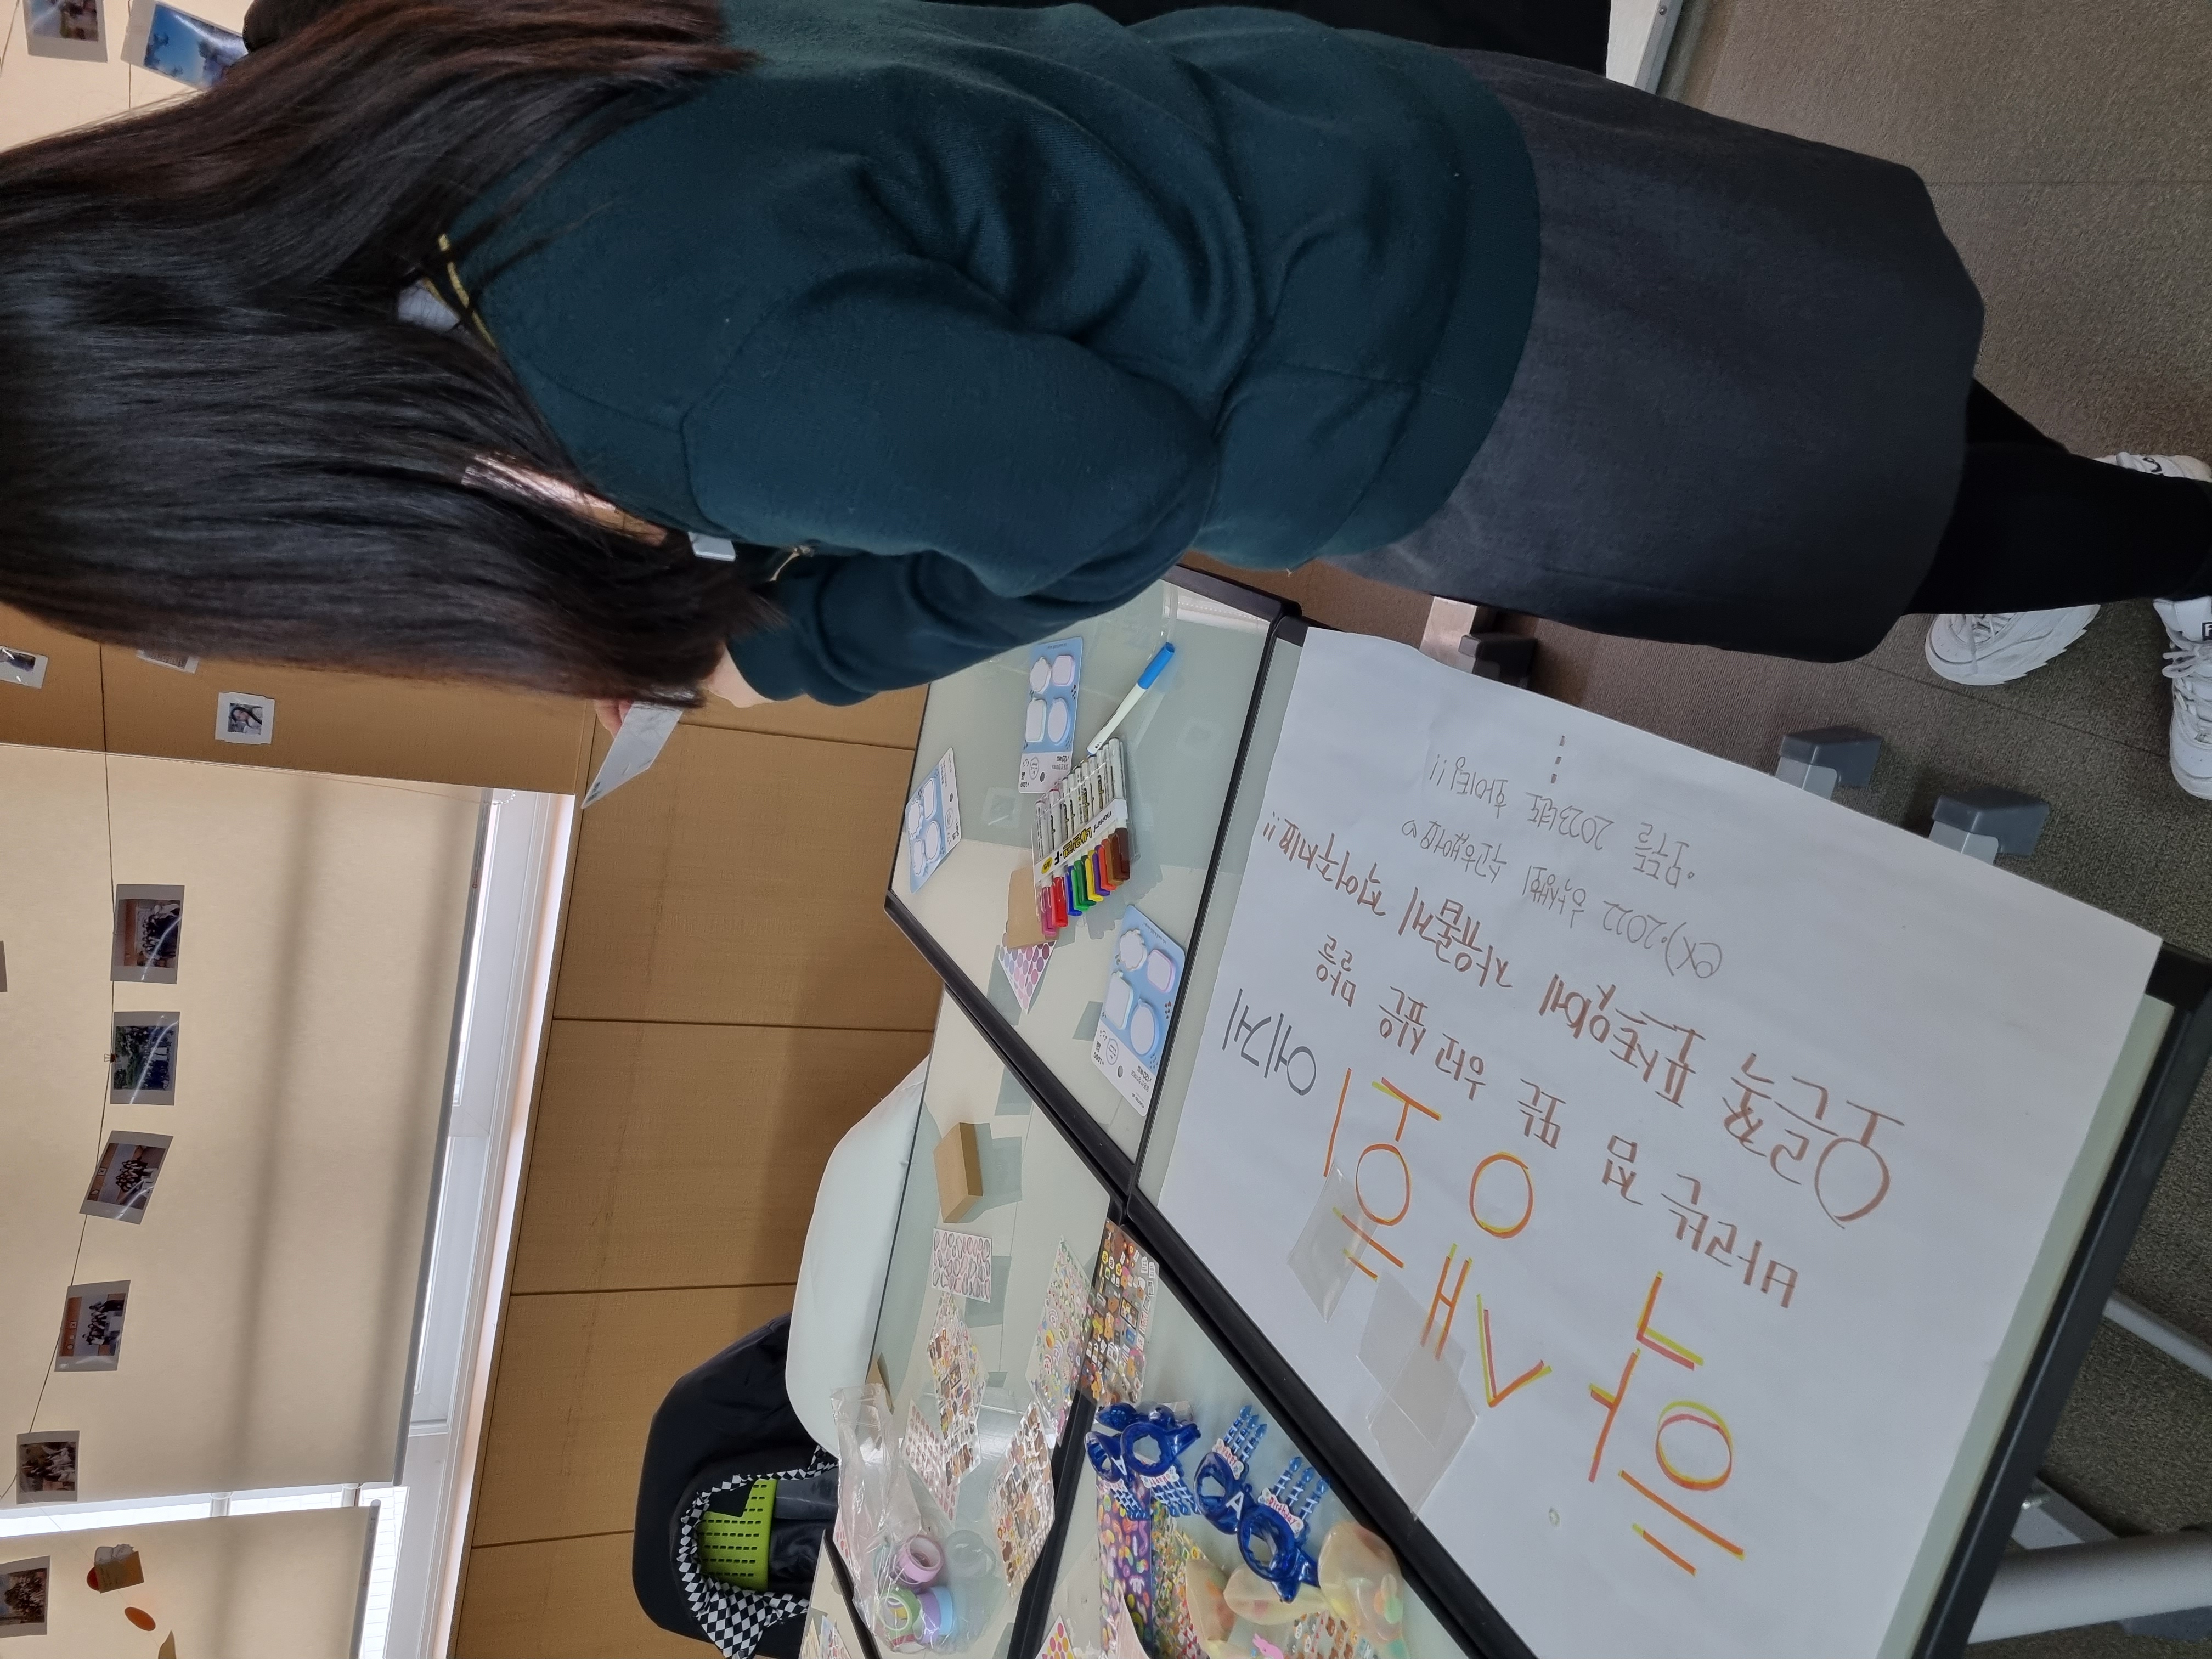 학생회에게
바라는 점 또는 하고 싶은 말을
오른쪽 포스트잇에 자유롭게 적어주세요!!
ex)·2022 학생회 수고했어요♡
·모두들 2023년도 화이팅!!